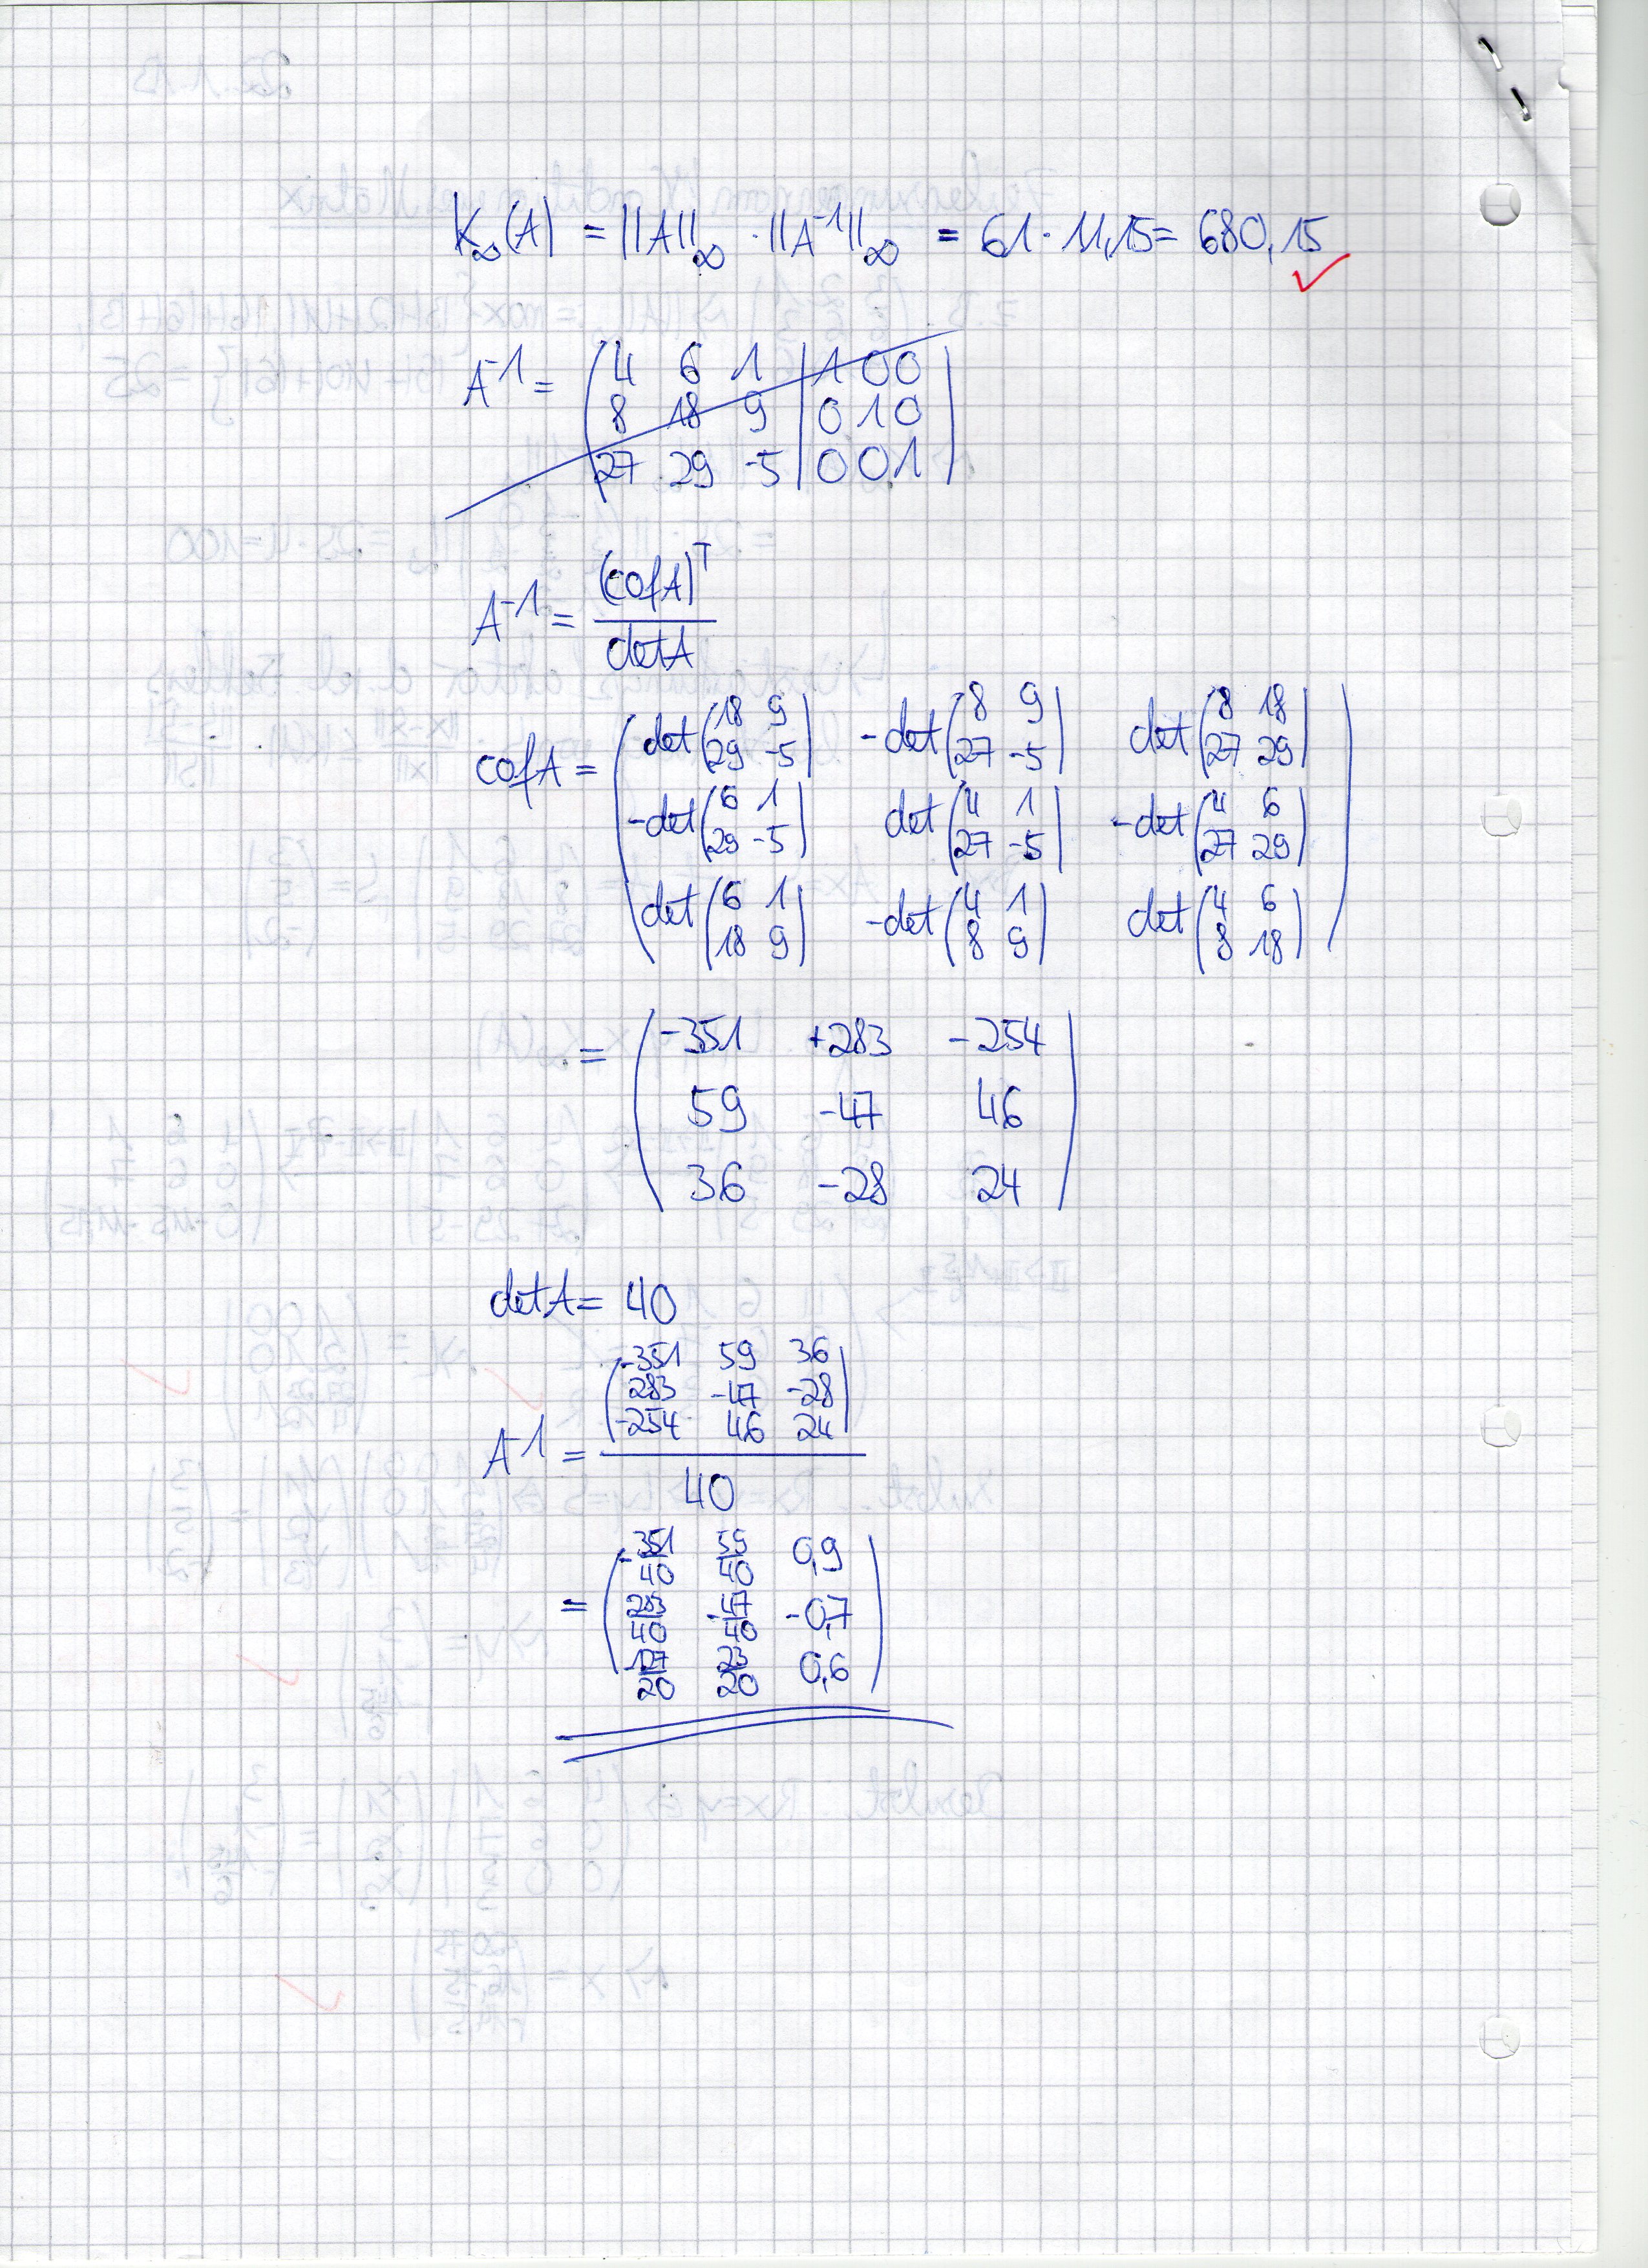 K∞(A) = ||A||∞ · ||A⁻¹||∞ = 61 · 11,15 = 680,15 ✓
A⁻¹ = ( 4 6 1 | 1 0 0
8 18 9 | 0 1 0
27 29 -5 | 0 0 1 )
A⁻¹ = (cofA)ᵀ / detA
cofA = ( det(18 9 / 29 -5) -det(8 9 / 27 -5) det(8 18 / 27 29)
-det(6 1 / 29 -5) det(4 1 / 27 -5) -det(4 6 / 27 29)
det(6 1 / 18 9) -det(4 1 / 8 9) det(4 6 / 8 18) )
= ( -351 +283 -254
59 -47 46
36 -28 24 )
detA = 40
A⁻¹ = ( -351 59 36
283 -47 -28
-254 46 24 ) / 40
= ( -351/40 59/40 0,9
283/40 -47/40 -0,7
-127/20 23/20 0,6 )